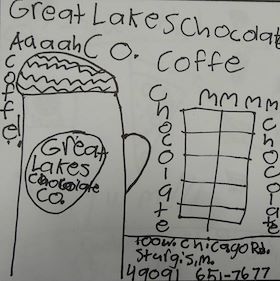 Great Lakes Chocolate
Co.
Aaaah
Coffe!
Coffe
Great
Lakes
Chocolate
Co.
Chocolate
MMMM
Chocolate
100w. Chicago Rd.
Sturgis, m.
49091 651-7677